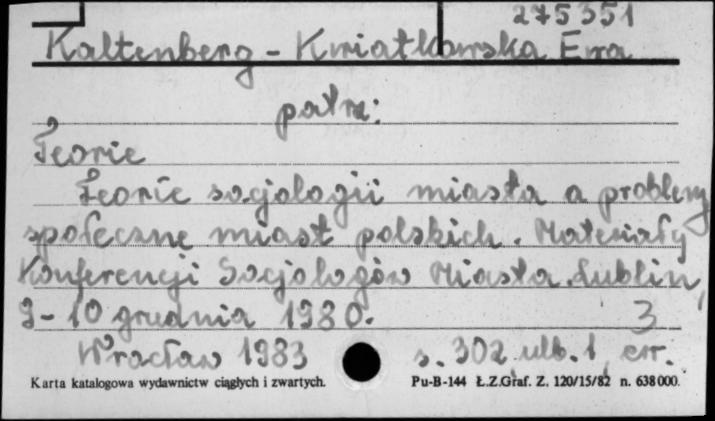 275351
Kaltenberg - Kwiatkowska Ewa
patrz:
Teorie
Teorie socjologii miasta a problemy
społeczne miast polskich. Materiały
Konferencji Socjologów Miasta. Lublin,
9-10 grudnia 1980. 3
Wrocław 1983 s. 302, ulb. 1, err.
Karta katalogowa wydawnictw ciągłych i zwartych. Pu-B-144 Ł.Z.Graf. Z. 120/15/82 n. 638000.